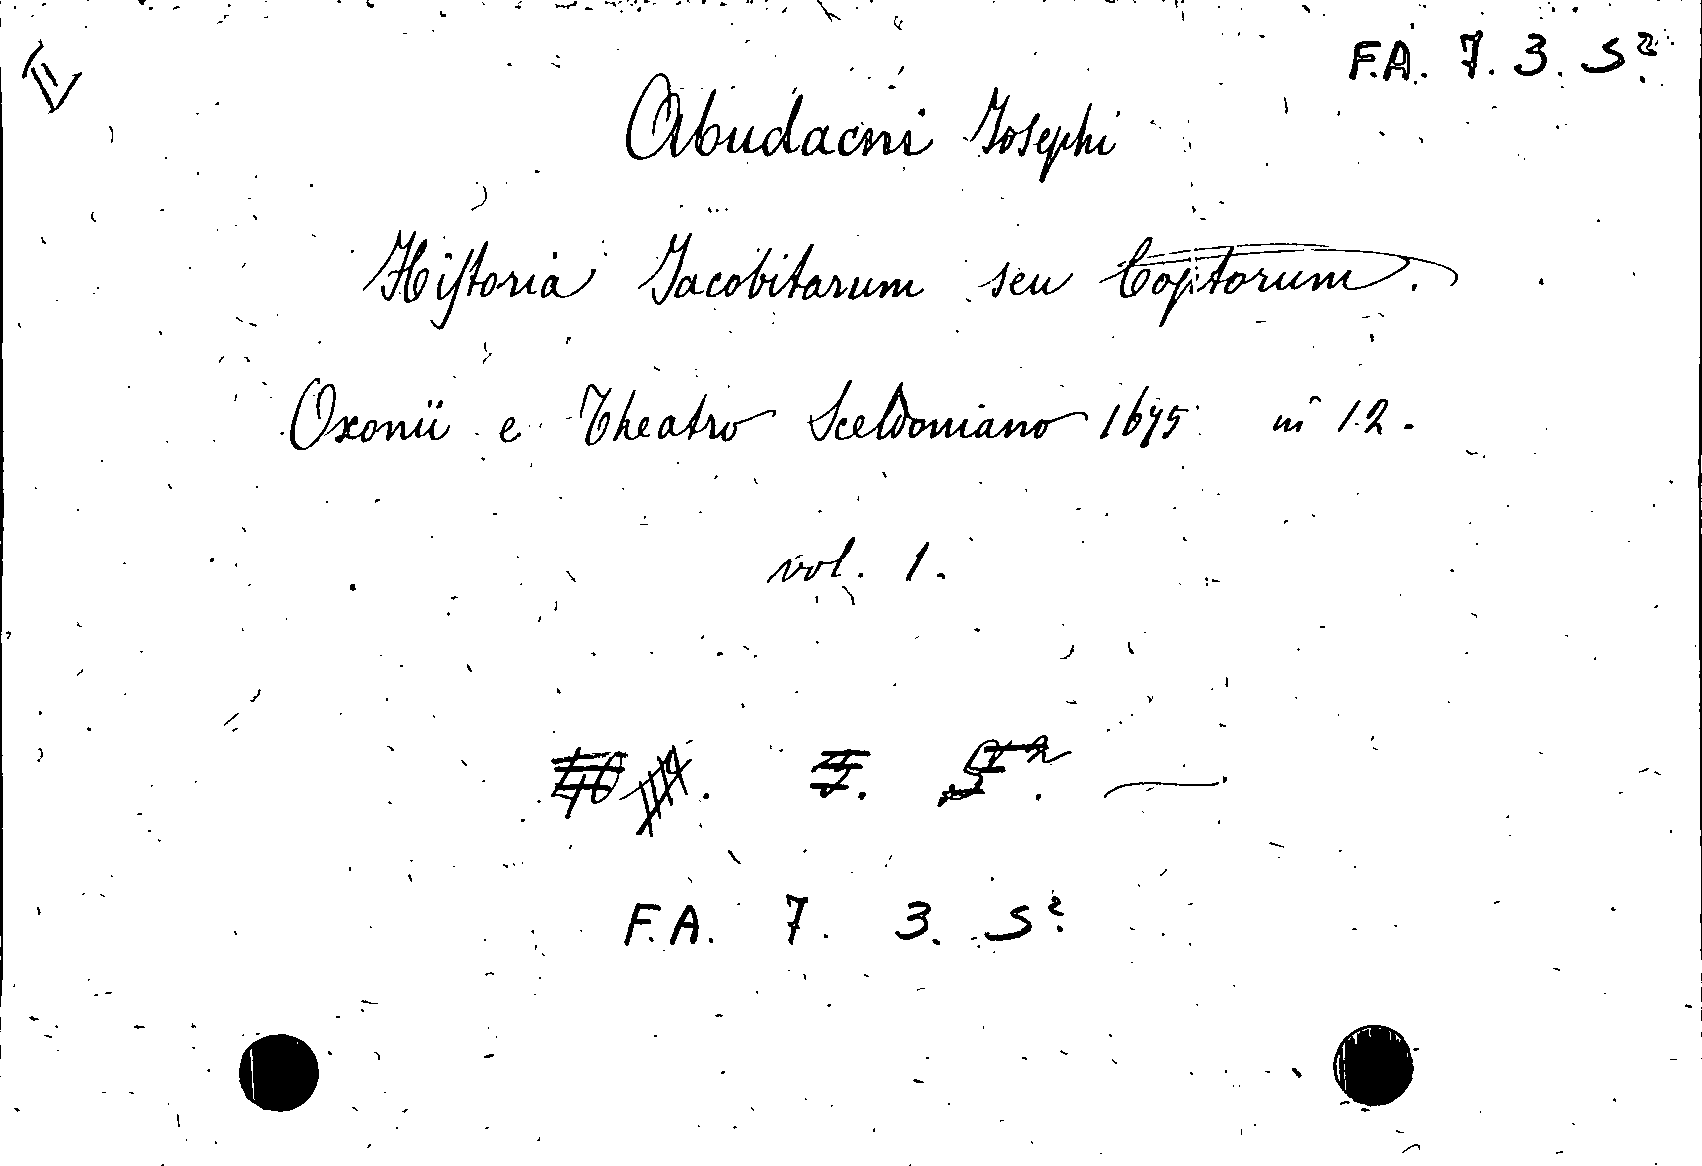 II
F.A. 7. 3. S².
Abudacni Josephi
Historia Jacobitarum seu Coptorum.
Oxonii e Theatro Sceldoniano 1675 in 12.
vol. 1.
F.A. 7. 3. S².